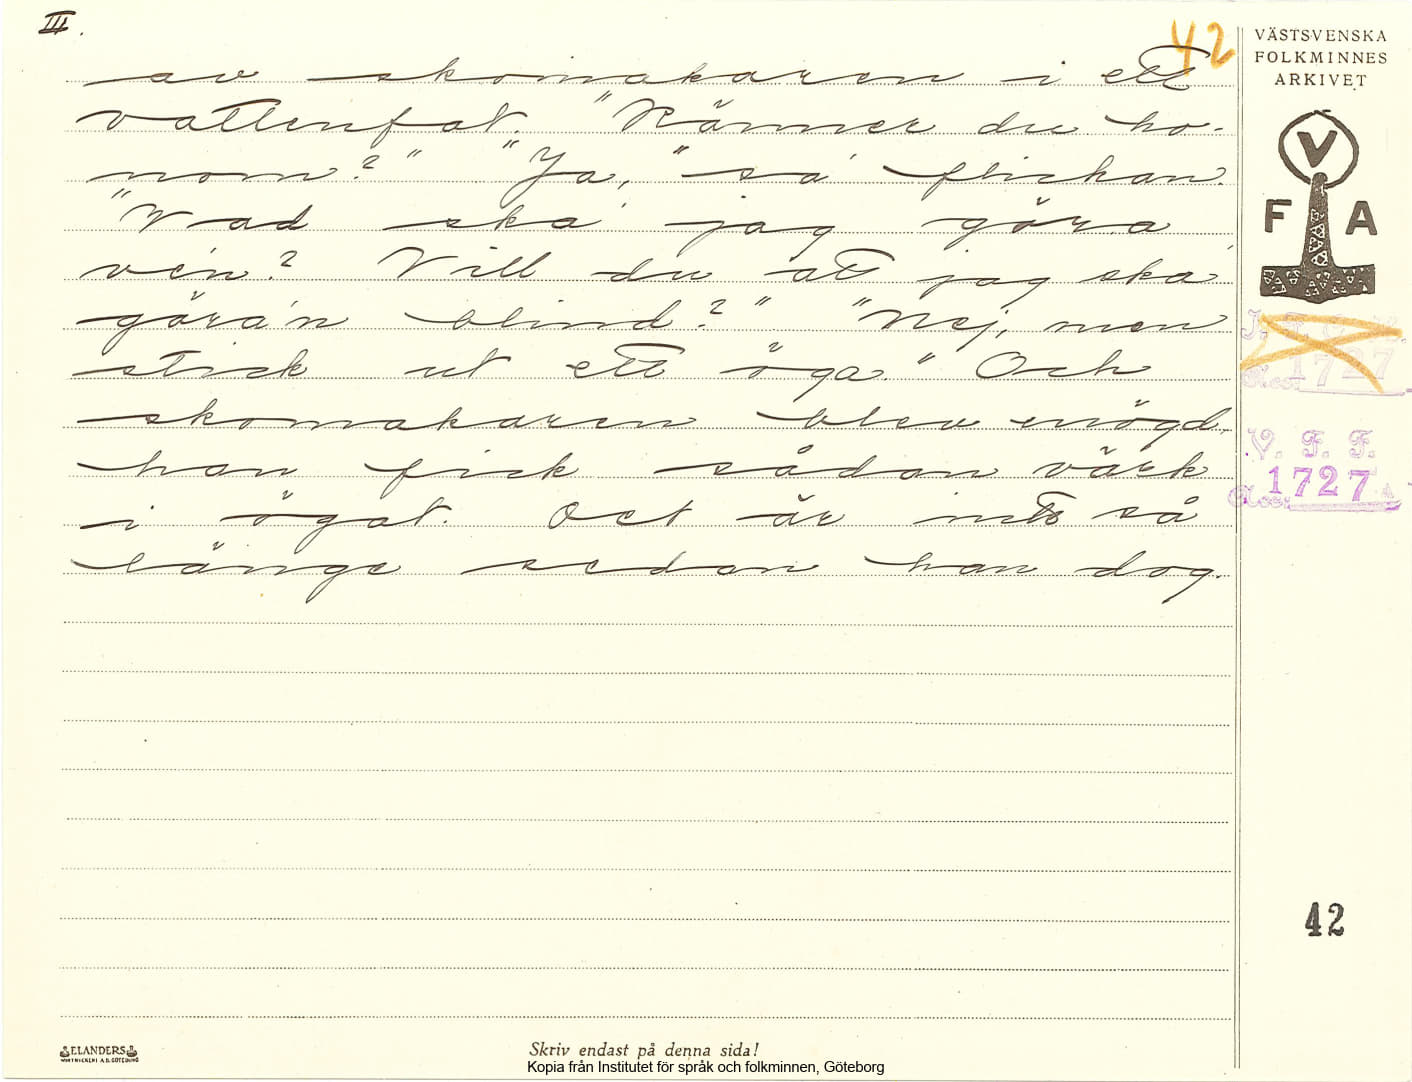 III.
42
av skomakaren i ett
vattenfat. "Känner du ho-
nom?" "Ja," sa' flickan.
"Vad ska' jag göra
ve'n? Vill du att jag ska'
göra'n blind?" "Nej, men
stick ut ett öga." Och
skomakaren blev enögd,
han fick sådan värk
i ögat. Det är inte så
länge sedan han dog.
VÄSTSVENSKA
FOLKMINNES
ARKIVET
V
F A
1727
V. F. F.
Acc: 1727
42
ELANDERS
Skriv endast på denna sida!
Kopia från Institutet för språk och folkminnen, Göteborg